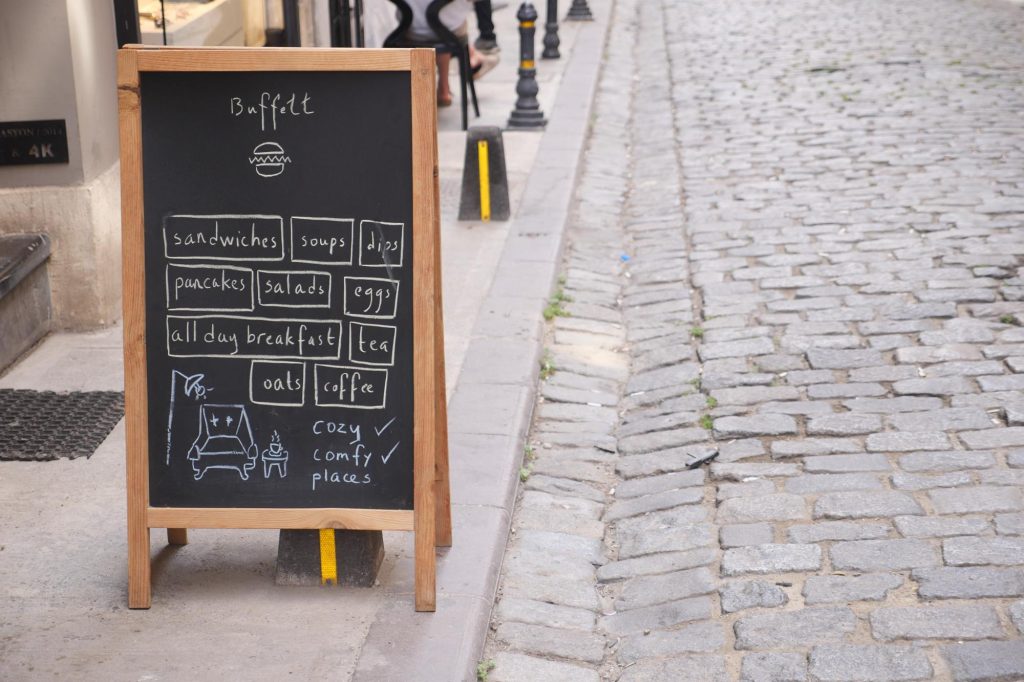 Buffett
sandwiches soups dips
pancakes salads eggs
all day breakfast tea
oats coffee
cozy ✓
comfy ✓
places
4K